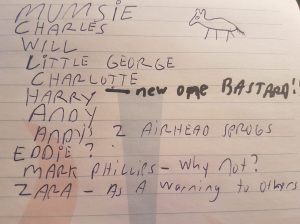 MUMSIE
CHARLES
WILL
LITTLE GEORGE
CHARLOTTE
HARRY — new one BASTARD!!
ANDY
ANDY'S 2 AIRHEAD SPROGS
EDDIE?
MARK PHILLIPS - Why Not?
ZARA - AS A Warning to others